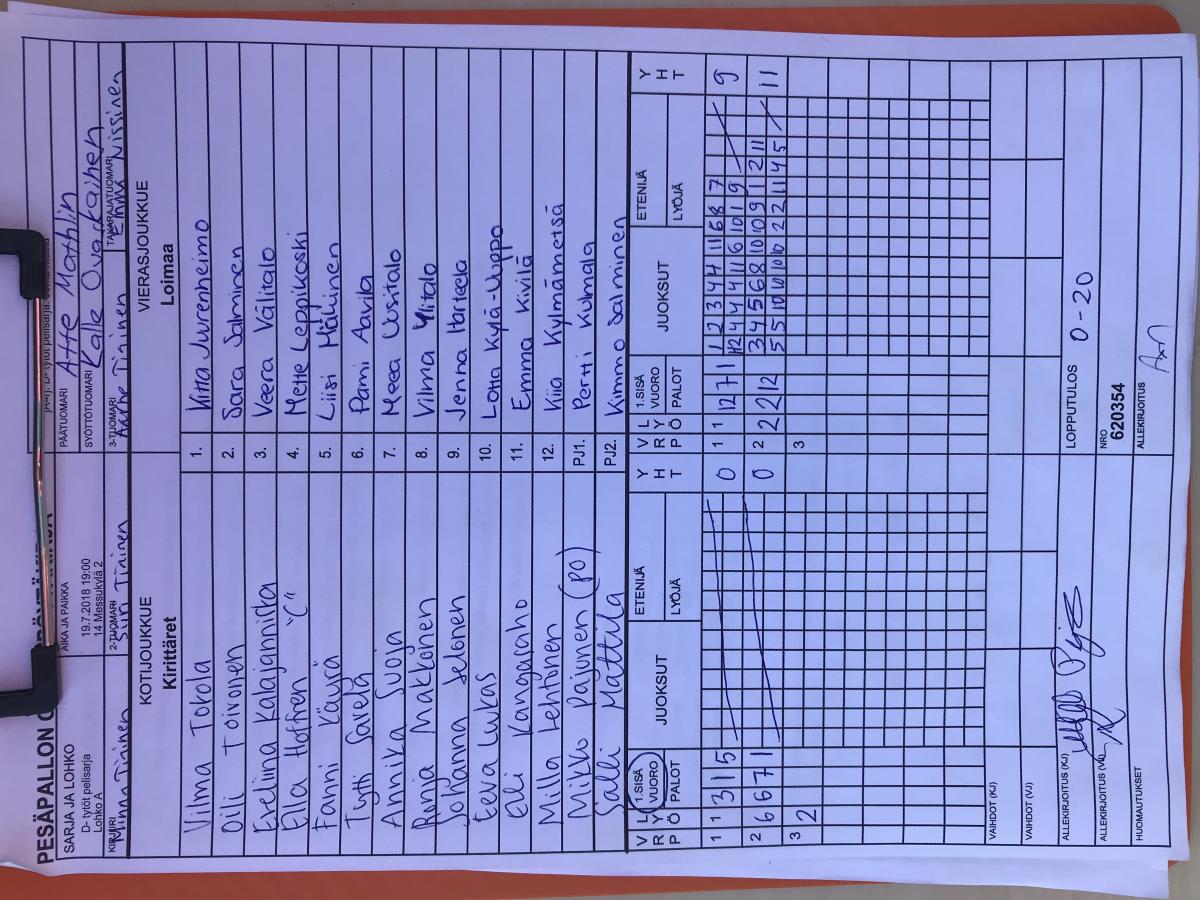 PESÄPALLON
SARJA JA LOHKO
D- tytöt pelisarja
Lohko A
AIKA JA PAIKKA
19.7.2018 19:00
14 Messukylä 2
PÄÄTUOMARI
SYÖTTÖTUOMARI Kalle Ovaskainen
2-TUOMARI
3-TUOMARI
TAKARAJATUOMARI
Emma Nissinen
KOTIJOUKKUE VIERASJOUKKUE
Kirittäret Loimaa
Vilma Tokola 1. Kitta Juurenheimo
Oili Toivonen 2. Sara Salminen
Eveliina Kalajanniska 3. Veera Välitalo
Ella Hoffren "C" 4. Mette Leppikoski
Fanni Käurä 5. Liisi Mäkinen
Tytti Sarelä 6. Pami Aavila
Annika Suoja 7. Meea Uusitalo
Ronja Makkonen 8. Vilma Ylitalo
Johanna Jelonen 9. Jenna Harteela
Eeva Lukas 10. Lotta Kylä-Uuppo
Elli Kangasaho 11. Emma Kivilä
Milla Lehtonen 12. Kiia Kylmämetsä
Mikko Pajunen (PO) PJ1. Pertti Kulmala
Salli Mattila PJ2. Kimmo Salminen
V R P L Y Ö 1.SISÄ VUORO PALOT JUOKSUT ETENIJÄ LYÖJÄ Y H T V R P L Y Ö 1.SISÄ VUORO PALOT JUOKSUT ETENIJÄ LYÖJÄ Y H T
1 1 3 1 5 0 1 1 12 7 1 1 2 3 4 4 11 6 8 7 9
12 4 4 4 11 6 10 1 9
2 6 6 7 1 0 2 2 2 12 3 4 5 6 8 10 10 9 1 2 11 11
5 5 10 10 10 10 2 2 11 4 5
3 2 3
VAIHDOT (KJ)
VAIHDOT (VJ)
ALLEKIRJOITUS (KJ) LOPPUTULOS 0-20
ALLEKIRJOITUS (VJ) NRO
620354
HUOMAUTUKSET ALLEKIRJOITUS